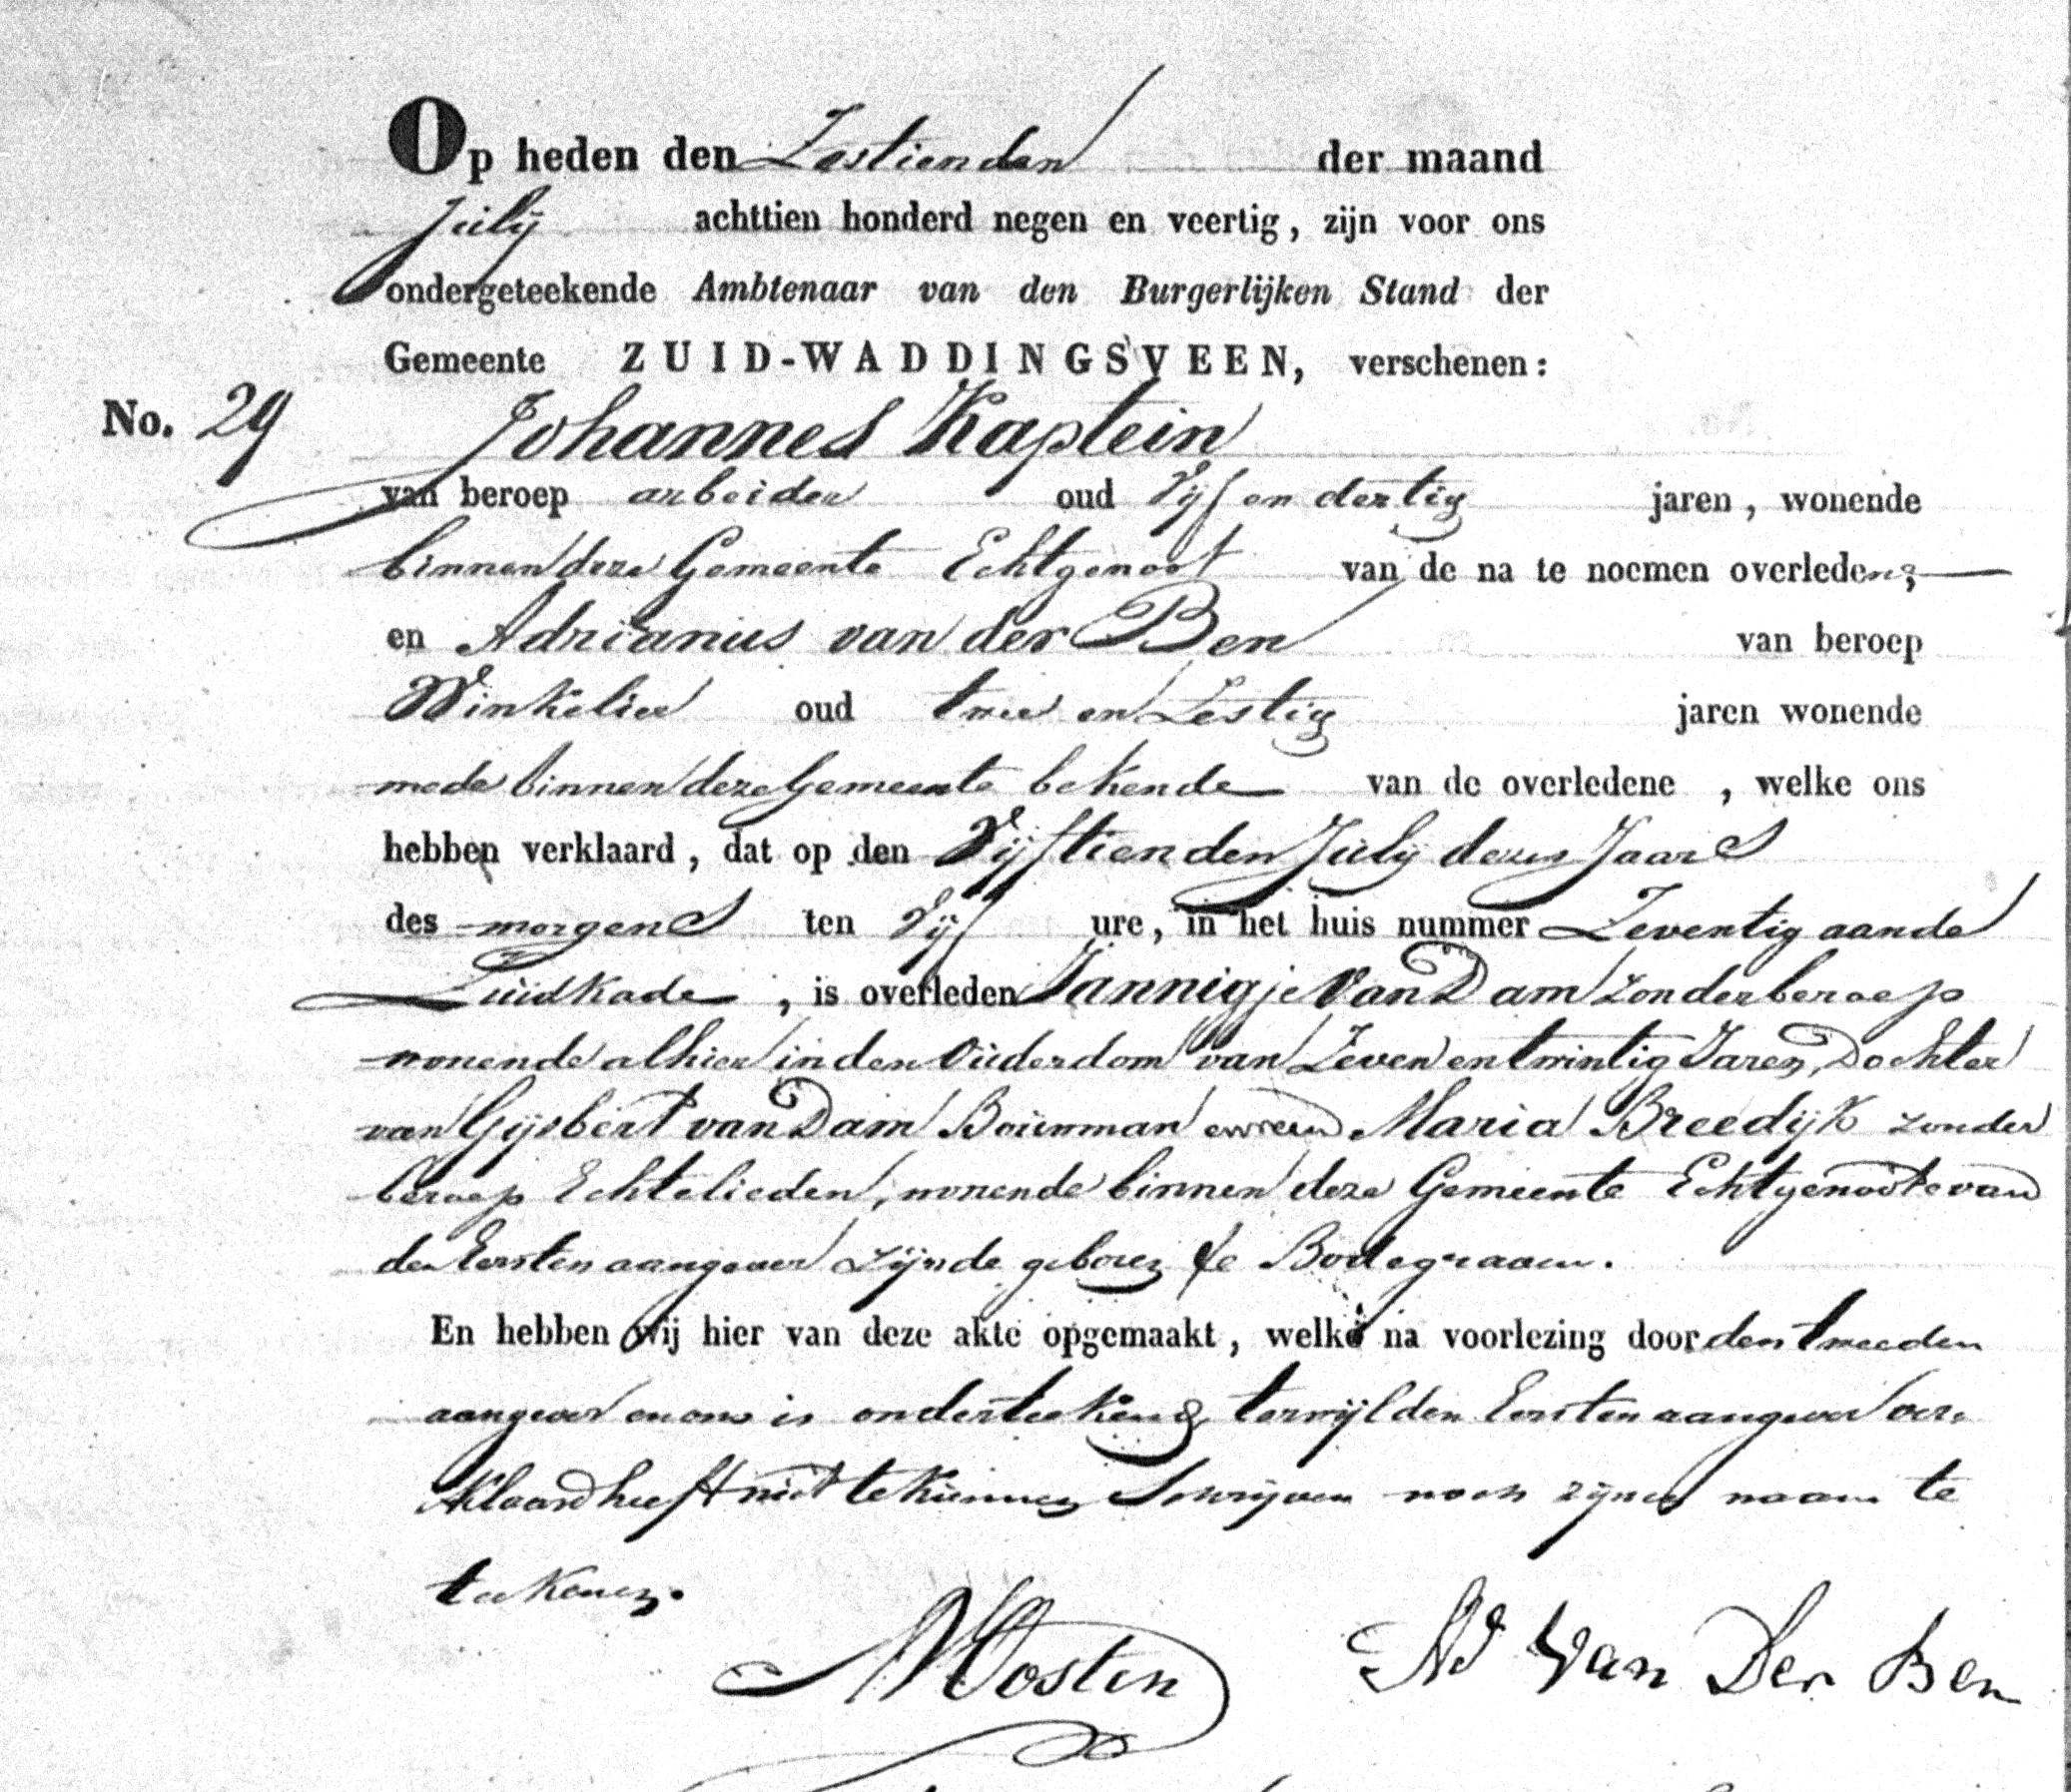 Op heden den Zestienden der maand
July achttien honderd negen en veertig, zijn voor ons
ondergeteekende Ambtenaar van den Burgerlijken Stand der
Gemeente ZUID-WADDINGSVEEN, verschenen:
No. 29 Johannes Kaptein
van beroep arbeider oud Vijf en dertig jaren, wonende
binnen deze Gemeente Echtgenoot van de na te noemen overledene,
en Adrianus van der Ben van beroep
Winkelier oud twee en Zestig jaren wonende
mede binnen deze Gemeente bekende van de overledene, welke ons
hebben verklaard, dat op den Vijftienden July dezes Jaars
des morgens ten Vijf ure, in het huis nummer Zeventig aan de
Zuidkade, is overleden Jannigje Van Dam zonder beroep
wonende alhier in den Ouderdom van Zeven en twintig Jaren, Dochter
van Gijsbert van Dam Bouwman en van Maria Breedijk zonder
beroep Echtelieden, wonende binnen deze Gemeente Echtgenoote van
den Eersten aangever zijnde geboren te Bodegraven.
En hebben wij hier van deze akte opgemaakt, welke na voorlezing door den tweeden
aangever en ons is onderteekend, terwijl den Eersten aangever ver-
klaard heeft niet te kunnen Schrijven noch zijnen naam te
teekenen.
Oosten Ad Van Der Ben